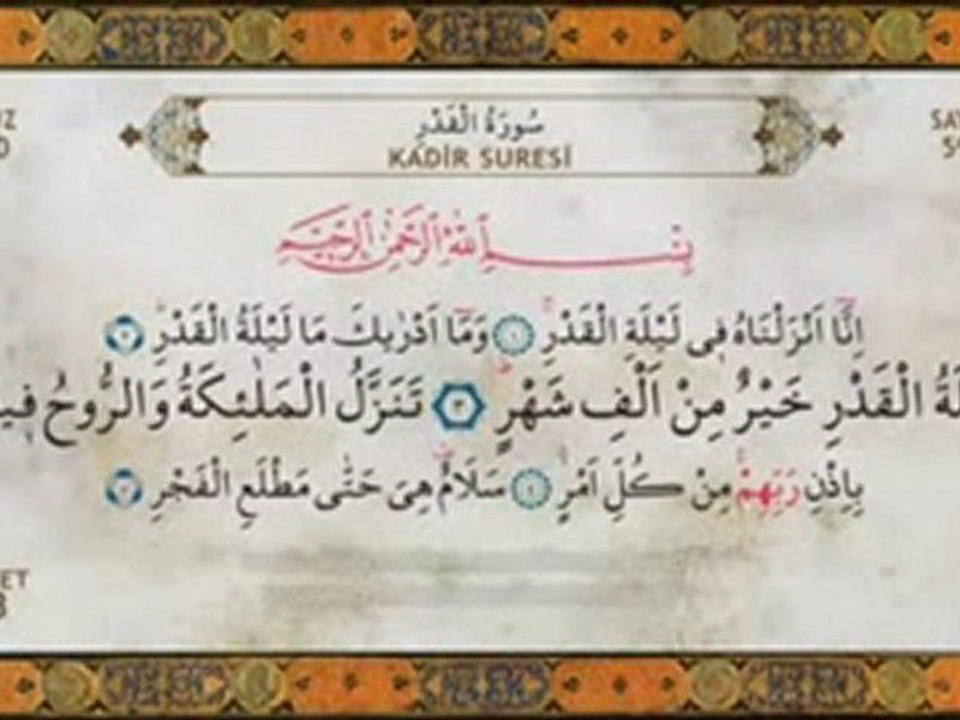 سُورَةُ الْقَدْرِ
KADİR SURESİ
بِسْمِ اللّٰهِ الرَّحْمٰنِ الرَّحِيمِ
اِنَّٓا اَنْزَلْنَاهُ ف۪ى لَيْلَةِ الْقَدْرِۚ ١ وَمَٓا اَدْرٰيكَ مَا لَيْلَةُ الْقَدْرِۜ ٢
لَةُ الْقَدْرِ خَيْرٌ مِنْ اَلْفِ شَهْرٍۜ ٣ تَنَزَّلُ الْمَلٰٓئِكَةُ وَالرُّوحُ ف۪ي
بِاِذْنِ رَبِّهِمْۚ مِنْ كُلِّ اَمْرٍۙ ٤ سَلَامٌ۠ هِىَ حَتّٰى مَطْلَعِ الْفَجْرِ